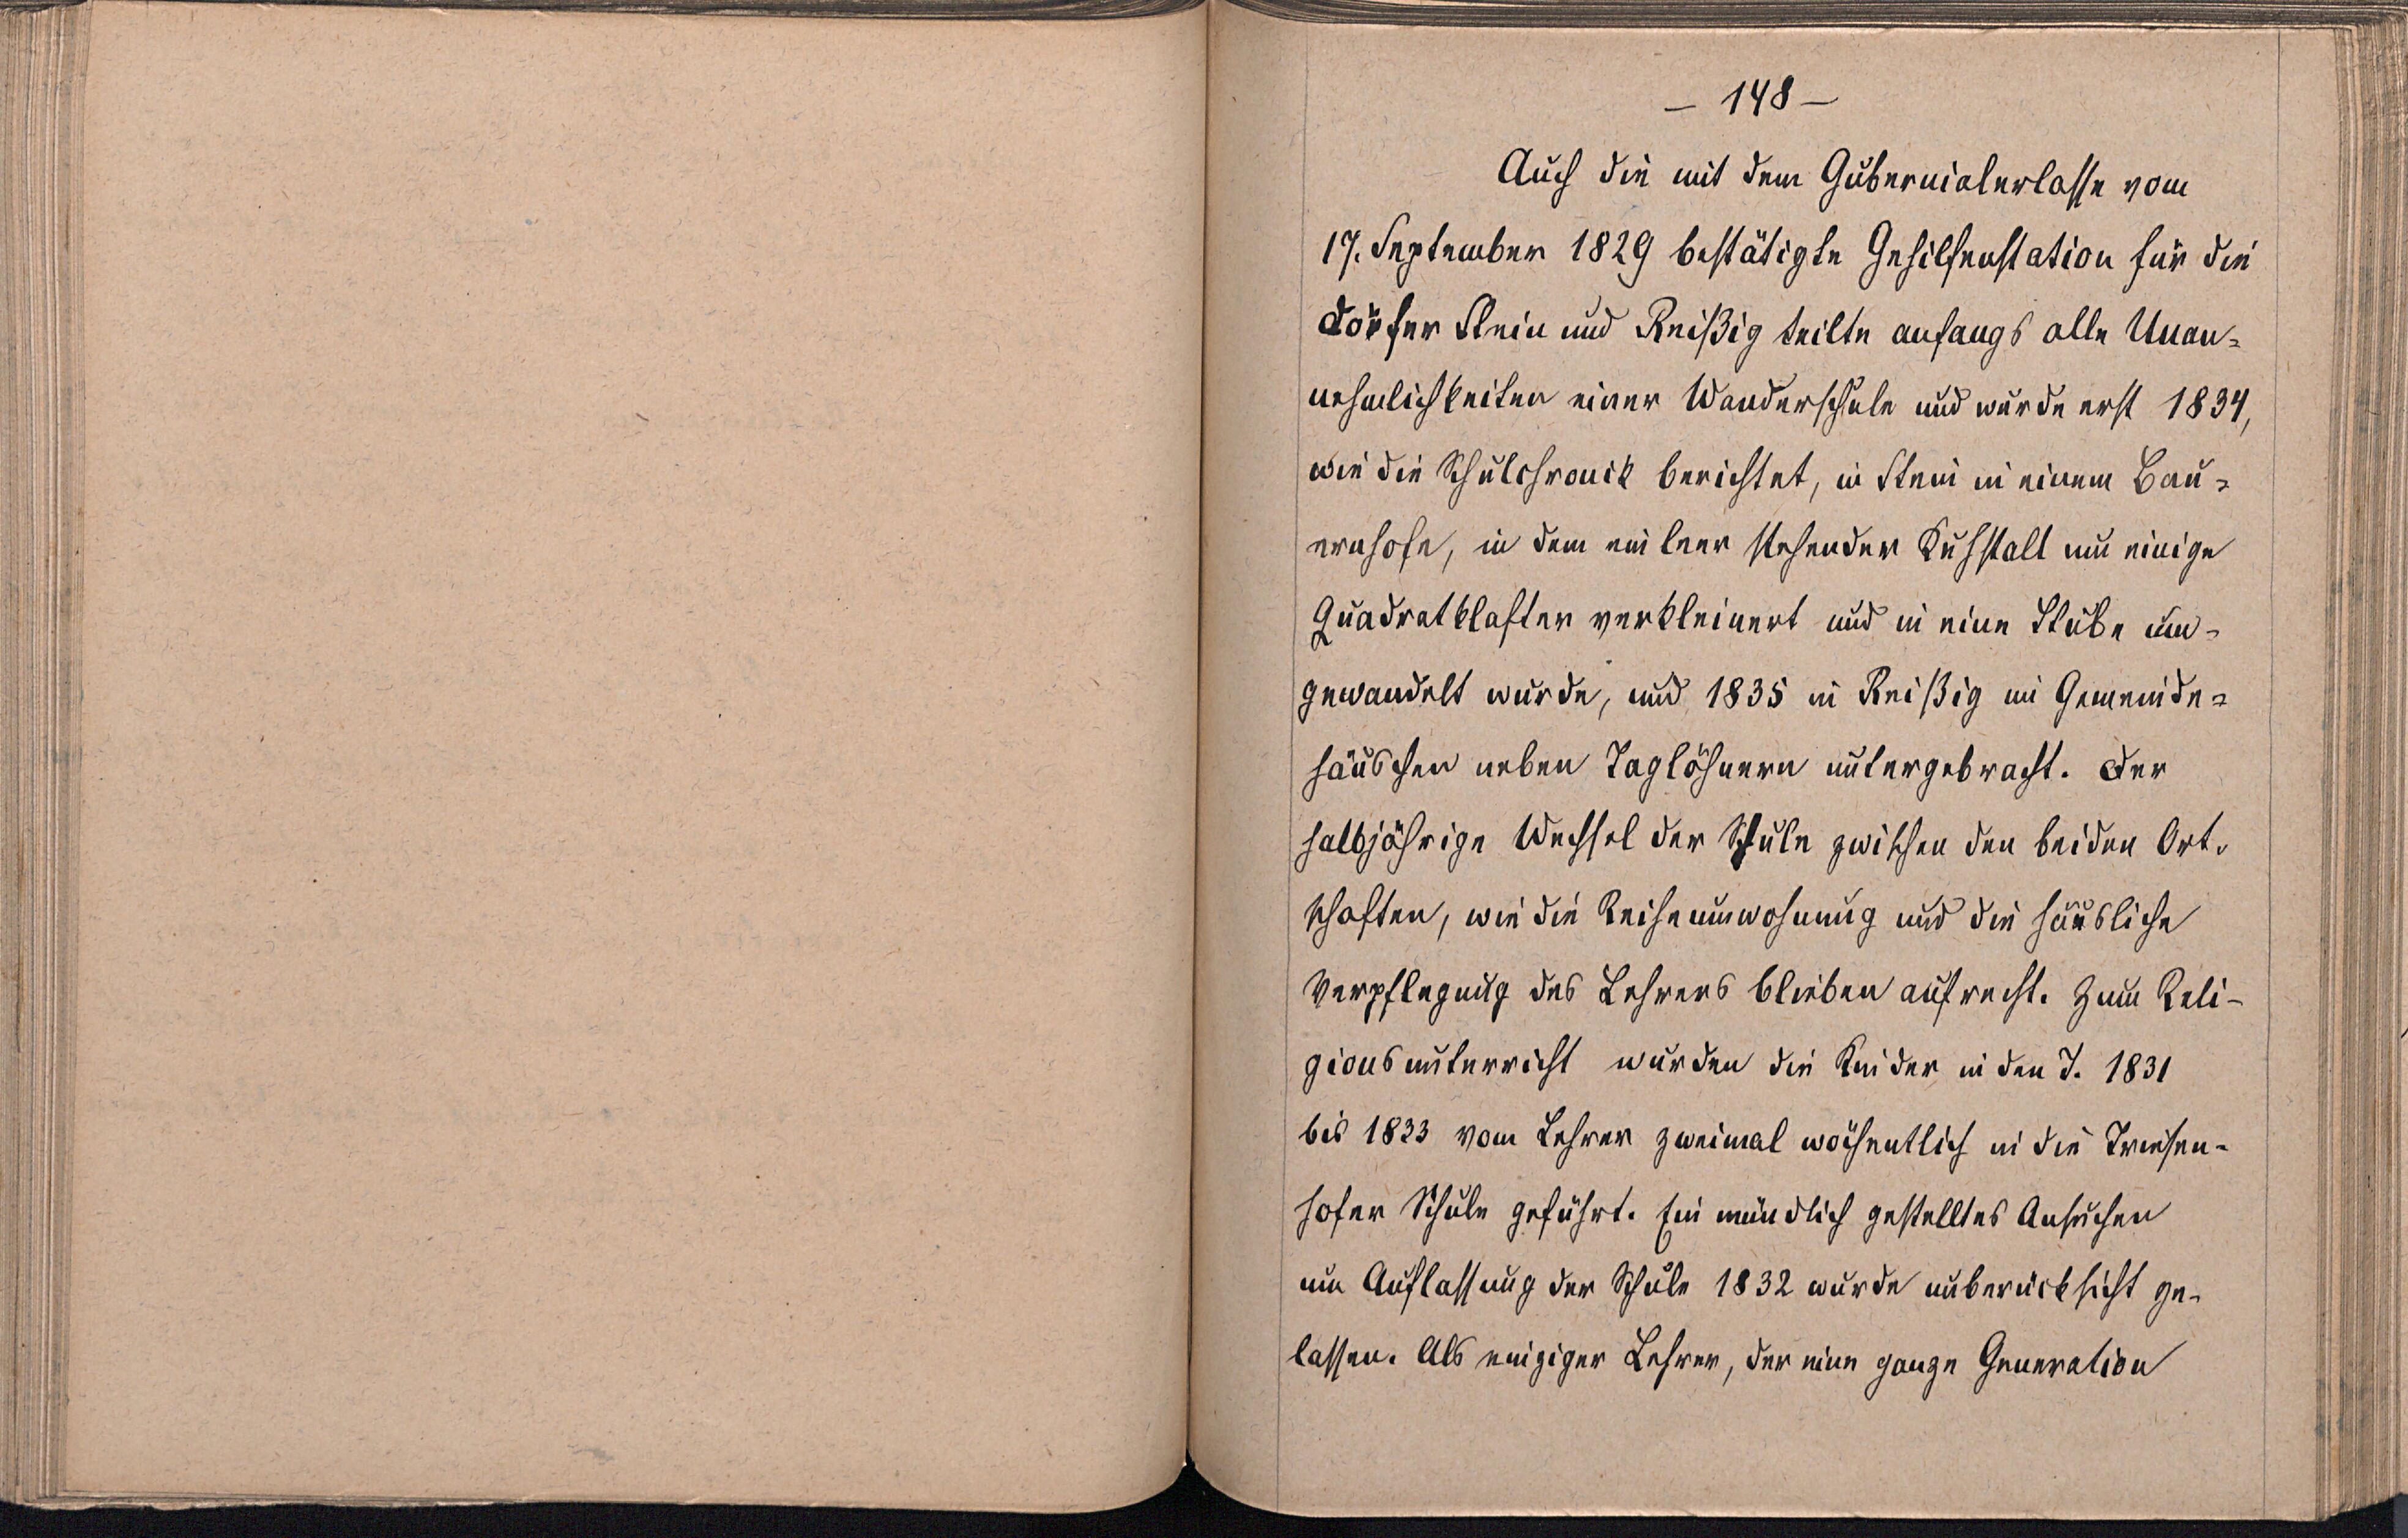 — 148 —
Auch die mit dem Gubernialerlasse vom
17. September 1829 bestätigte Gehilfenstation für die
Dörfer Stein und Reißig teilte anfangs alle Unan-
nehmlichkeiten einer Wanderschule und wurde erst 1834,
wie die Schulchronik berichtet, in Stein in einem Bau-
ernhofe, in dem ein leer stehender Kuhstall um einige
Quadratklafter verkleinert und in eine Stube um-
gewandelt wurde, und 1835 in Reißig im Gemeinde-
häuschen neben Taglöhnern untergebracht. Der
halbjährige Wechsel der Schule zwischen den beiden Ort-
schaften, wie die Reiheumwohnung und die häusliche
Verpflegung des Lehrers blieben aufrecht. Zum Reli-
gionsunterricht wurden die Kinder in den J. 1831
bis 1833 vom Lehrer zweimal wöchentlich in die
hofer Schule geführt. Ein mündlich gestelltes Ansuchen
um Auflassung der Schule 1832 wurde unberücksicht ge-
lassen. Als einziger Lehrer, der eine ganze Generation